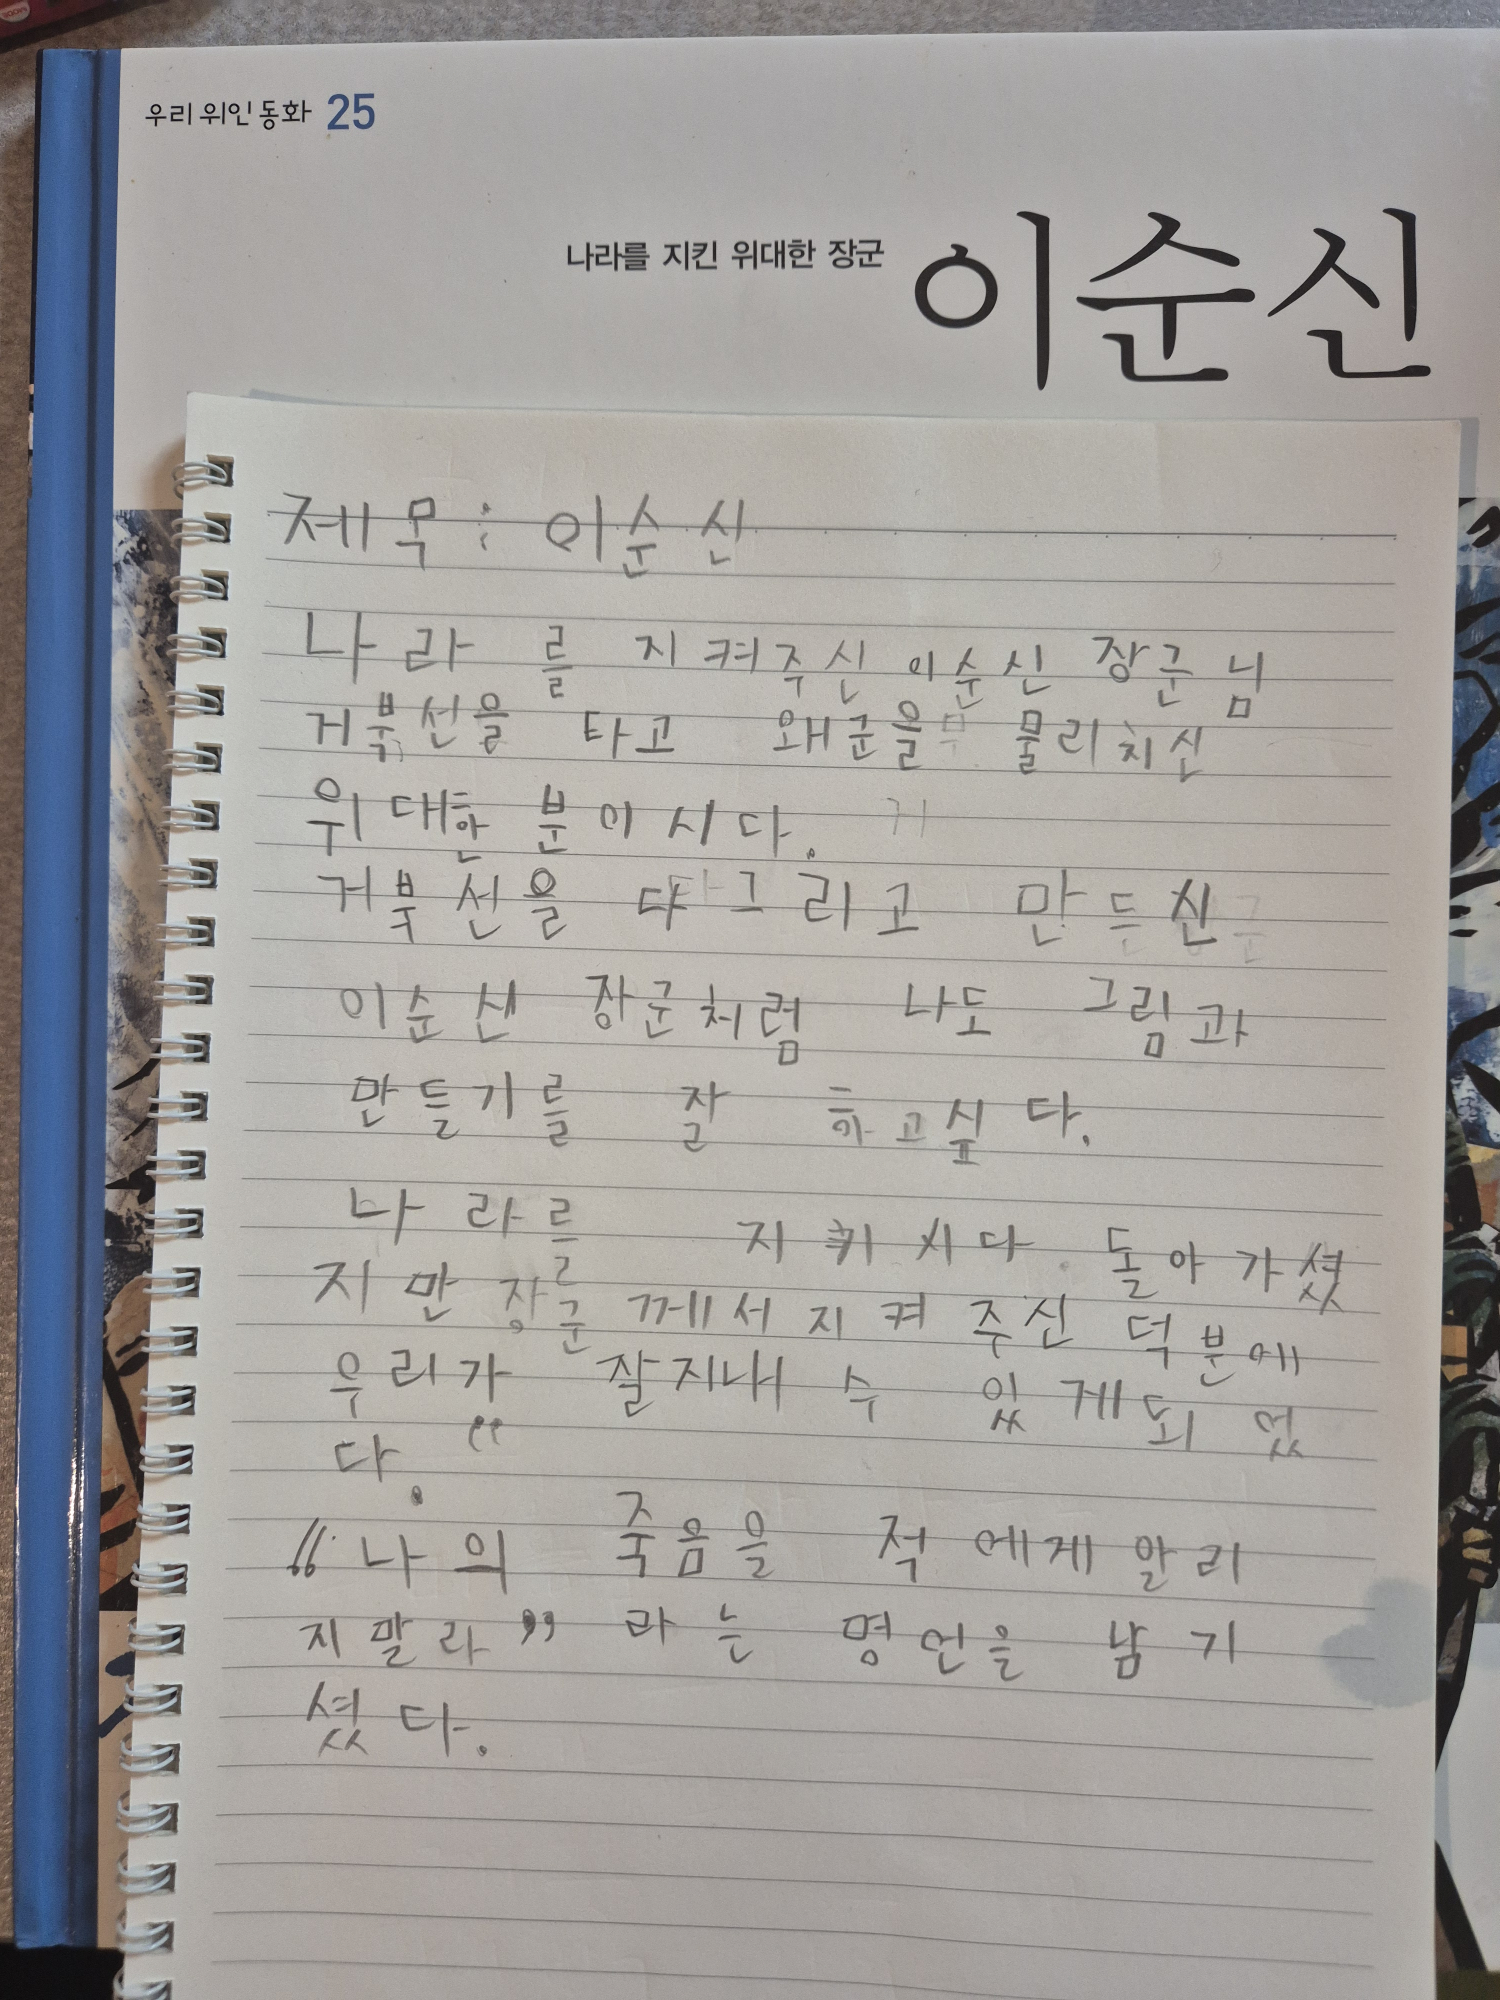 우리 위인동화 25
나라를 지킨 위대한 장군 이순신
제목 : 이순신
나라를 지켜주신 이순신 장군님
거북선을 타고 왜군을 물리치신
위대한 분이시다.
거북선을 다 그리고 만드신
이순신 장군처럼 나도 그림과
만들기를 잘 하고싶다.
나라를 지키시다. 돌아가셨
지만 장군께서 지켜주신 덕분에
우리가 잘지내 수 있게되었
다. “
“나의 죽음을 적에게 알리
지말라” 라는 명언을 남기
셨다.